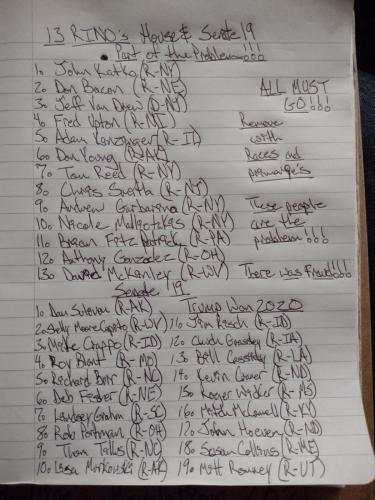 13 RINO's House & Senate 19
Part of the Problem!!!
1. John Katko (R-NY)
2. Don Bacon (R-NE)
3. Jeff Van Drew (R-NJ)
4. Fred Upton (R-MI)
5. Adam Kenzinger (R-ID)
6. Don Young (R-AK)
7. Tom Reed (R-NY)
8. Chris Smith (R-NJ)
9. Andrew Garbarino (R-NY)
10. Nicole Maliotikas (R-NY)
11. Brian Fitzpatrick (R-PA)
12. Anthony Gonzalez (R-OH)
13. David McKenley (R-WV)
ALL MUST
GO!!!
Remove
with
Races and
primarys
These people
are the
problem!!!
There was Fraud!!!
Senate 19
Trump Won 2020
1. Dan Suleven (R-AK)
2. Shelly Moore Capito (R-WV)
3. Mike Crappo (R-ID)
4. Roy Blunt (R-MO)
5. Richard Burr (R-NC)
6. Deb Fisher (R-NE)
7. Lindsey Graham (R-SC)
8. Rob Portman (R-OH)
9. Thom Tillis (R-NC)
10. Lisa Murkowski (R-AK)
11. Jim Risch (R-ID)
12. Chuck Grassley (R-IA)
13. Bill Cassidy (R-LA)
14. Kevin Cramer (R-ND)
15. Roger Wicker (R-MS)
16. Mitch McConnell (R-KY)
17. John Hoeven (R-ND)
18. Susan Collins (R-ME)
19. Mitt Romney (R-UT)